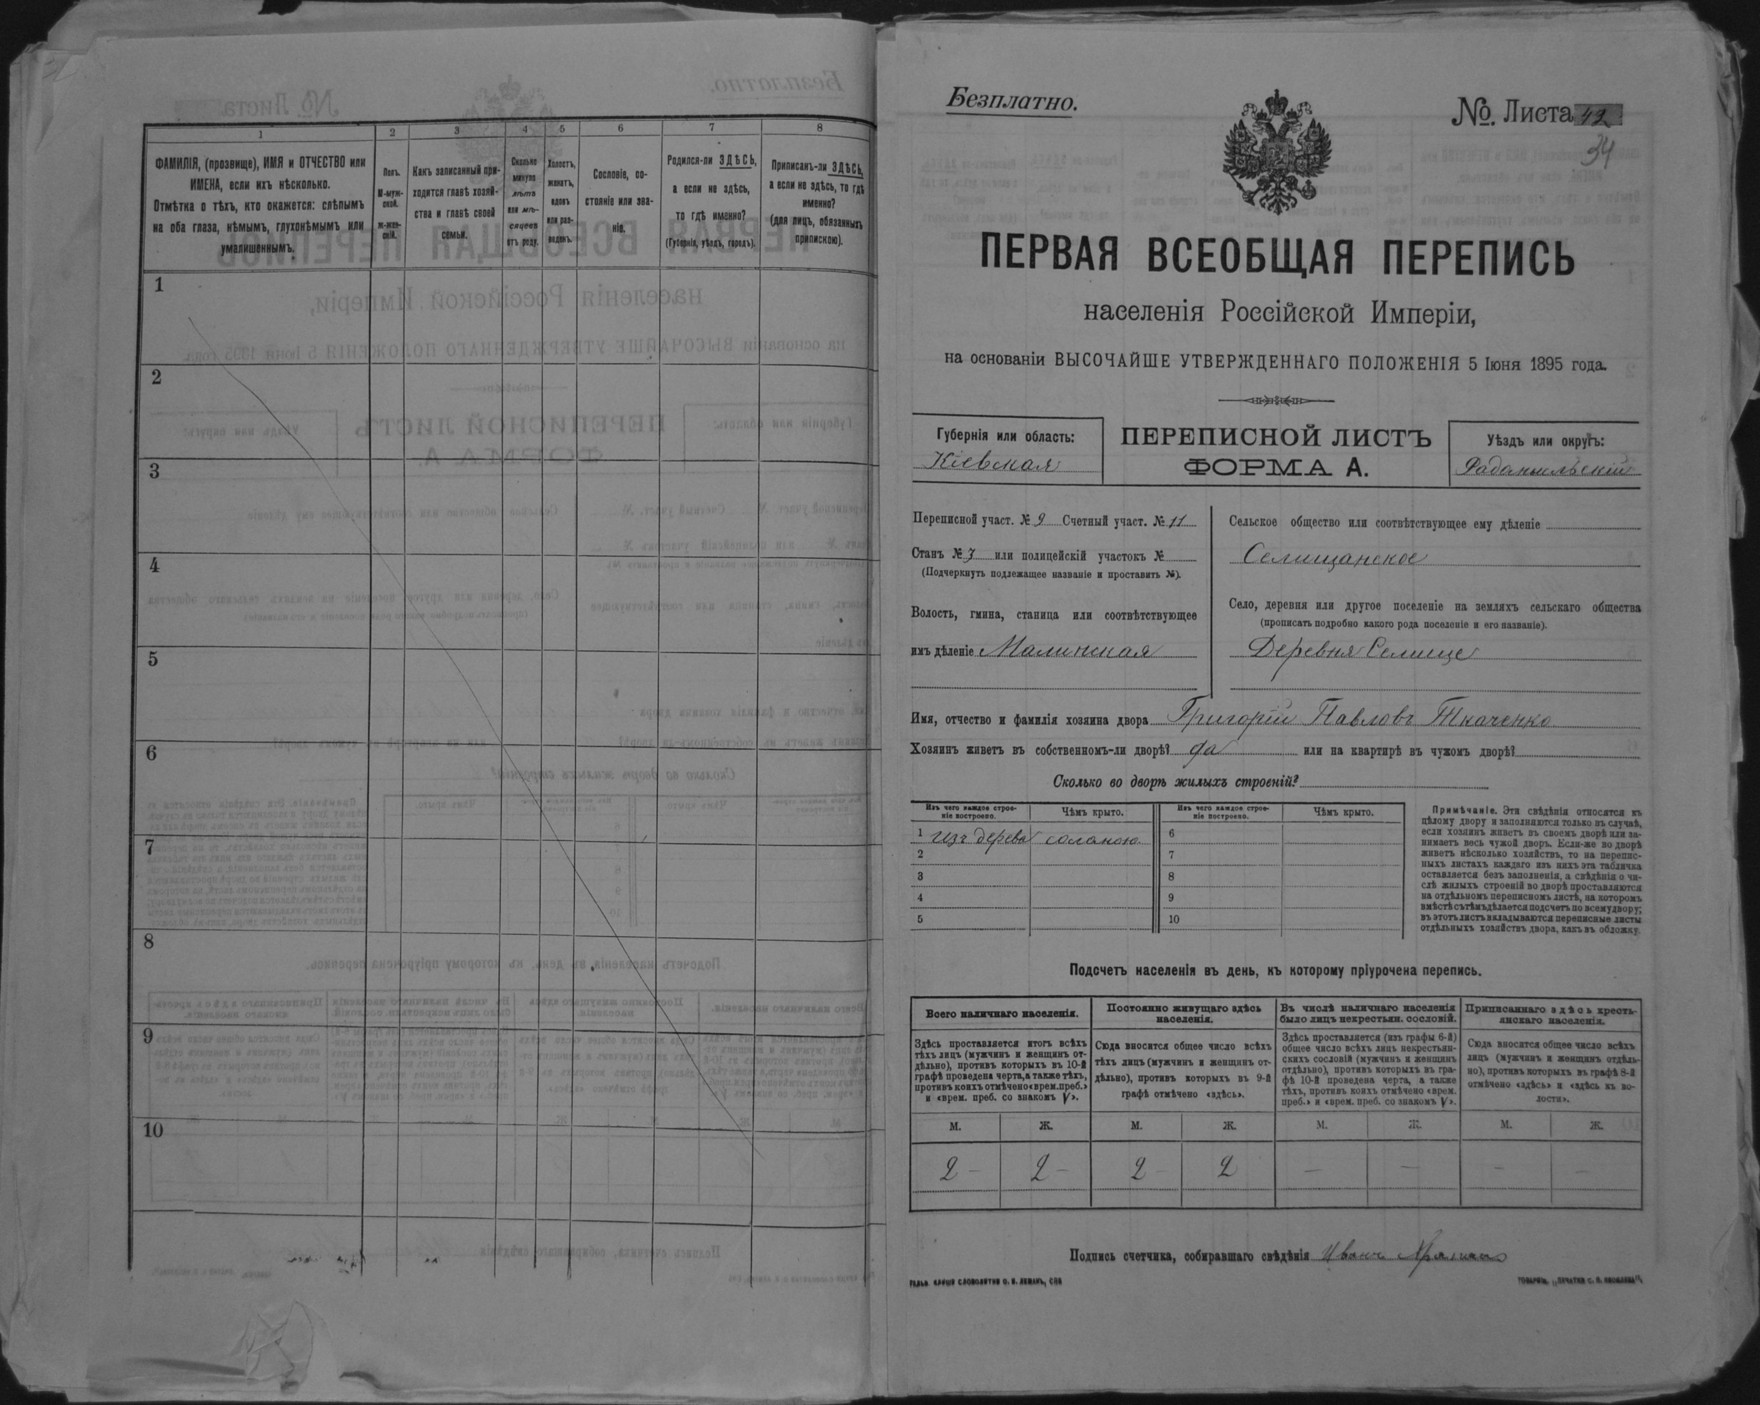 1
2
3
4
5
6
7
8
ФАМИЛІЯ, (прозвище), ИМЯ и ОТЧЕСТВО или
ИМЕНА, если ихъ нѣсколько.
Отмѣтка о тѣхъ, кто окажется: слѣпымъ
на оба глаза, нѣмымъ, глухонѣмымъ или
умалишеннымъ.
Полъ.
М-муж-
ской.
Ж-жен-
скій.
Какъ записанный при-
ходится главѣ хозяй-
ства и главѣ своей
семьи.
Сколько
минуло
лѣтъ
или мѣ-
сяцевъ
отъ роду.
Холостъ,
женатъ,
вдовъ
или раз-
веденъ.
Сословіе, со-
стояніе или зва-
ніе.
Родился-ли ЗДѢСЬ,
а если не здѣсь,
то гдѣ именно?
(Губернія, уѣздъ, городъ).
Приписанъ-ли ЗДѢСЬ,
а если не здѣсь, то гдѣ
именно?
(для лицъ, обязанныхъ
припискою).
1
2
3
4
5
6
7
8
9
10
Безплатно.
№. Листа 42
34
ПЕРВАЯ ВСЕОБЩАЯ ПЕРЕПИСЬ
населенія Россійской Имперіи,
на основаніи ВЫСОЧАЙШЕ УТВЕРЖДЕННАГО ПОЛОЖЕНІЯ 5 Іюня 1895 года.
Губернія или область:
Кіевская
ПЕРЕПИСНОЙ ЛИСТЪ
ФОРМА А.
Уѣздъ или округъ:
Радомысльскій
Переписной участ. № 9 Счетный участ. № 11
Станъ № 3 или полицейскій участокъ №
(Подчеркнуть подлежащее названіе и проставить №).
Волость, гмина, станица или соотвѣтствующее
имъ дѣленіе Малинская
Сельское общество или соотвѣтствующее ему дѣленіе
Селищанское
Село, деревня или другое поселеніе на земляхъ сельскаго общества
(прописать подробно какого рода поселеніе и его названіе).
Деревня Селище
Имя, отчество и фамилія хозяина двора Григорій Павловъ Ткаченко
Хозяинъ живетъ въ собственномъ-ли дворѣ? да или на квартирѣ въ чужомъ дворѣ?
Сколько во дворѣ жилыхъ строеній?
Изъ чего каждое строе-
ніе построено.
Чѣмъ крыто.
Изъ чего каждое строе-
ніе построено.
Чѣмъ крыто.
1 изъ дерева соломою
2
3
4
5
6
7
8
9
10
Примѣчаніе. Эти свѣдѣнія относятся къ
цѣлому двору и заполняются только въ случаѣ,
если хозяинъ живетъ въ своемъ дворѣ или за-
нимаетъ весь чужой дворъ. Если-же во дворѣ
живетъ нѣсколько хозяйствъ, то на перепис-
ныхъ листахъ каждаго изъ нихъ эта табличка
оставляется безъ заполненія, а свѣдѣнія о чи-
слѣ жилыхъ строеній во дворѣ проставляются
на отдѣльномъ переписномъ листѣ, на которомъ
вмѣстѣ съ тѣмъ дѣлается подсчетъ по всему двору;
въ этотъ листъ вкладываются переписные листы
отдѣльныхъ хозяйствъ двора, какъ въ обложку.
Подсчетъ населенія въ день, къ которому пріурочена перепись.
Всего наличнаго населенія.
Постоянно живущаго здѣсь
населенія.
Въ числѣ наличнаго населенія
было лицъ некрестьян. сословій.
Приписаннаго здѣсь кресть-
янскаго населенія.
Здѣсь проставляется итогъ всѣхъ
тѣхъ лицъ (мужчинъ и женщинъ от-
дѣльно), противъ которыхъ въ 10-й
графѣ проведена черта, а также тѣхъ,
противъ коихъ отмѣчено «врем. преб.»
и «врем. преб. со знакомъ V».
Сюда вносится общее число всѣхъ
тѣхъ лицъ (мужчинъ и женщинъ от-
дѣльно), противъ которыхъ въ 9-й
графѣ отмѣчено «здѣсь».
Здѣсь проставляется (изъ графы 6-й)
общее число всѣхъ лицъ некрестьян-
скихъ сословій (мужчинъ и женщинъ
отдѣльно), противъ которыхъ въ гра-
фѣ 10-й проведена черта, а также
тѣхъ, противъ коихъ отмѣчено «врем.
преб.» и «врем. преб. со знакомъ V».
Сюда вносится общее число всѣхъ
лицъ (мужчинъ и женщинъ отдѣль-
но), противъ которыхъ въ графѣ 8-й
отмѣчено «здѣсь» и «здѣсь къ во-
лости».
М. Ж. М. Ж. М. Ж. М. Ж.
2 - 2 - 2 - 2 - - - -
Подпись счетчика, собиравшаго свѣдѣнія Иванъ